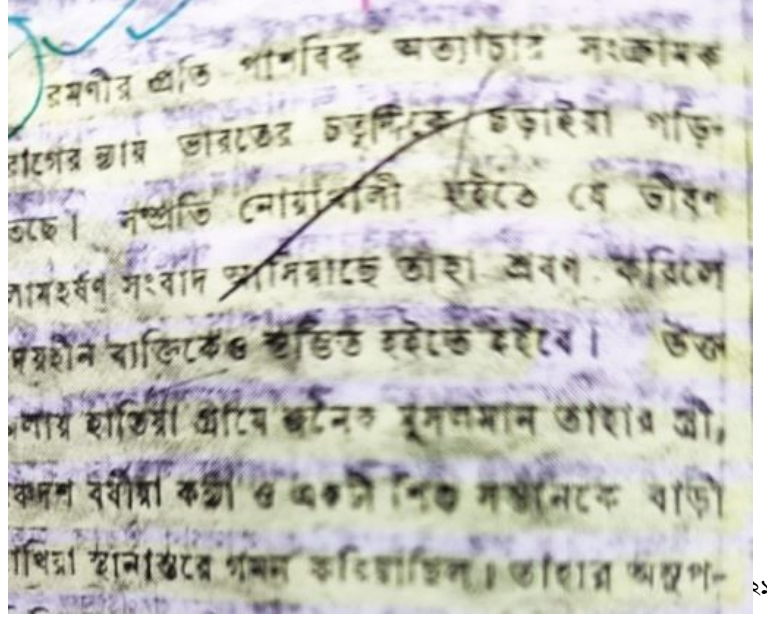 রমণীর প্রতি পাশবিক অত্যাচার সংক্রামক
রাগের ন্যায় ভারতের চতুর্দ্দিকে ছড়াইয়া পড়ি-
তেছে। সম্প্রতি নোয়াখালী হইতে যে ভীষণ
লোমহর্ষণ সংবাদ আসিয়াছে তাহা শ্রবণ করিলে
হৃদয়হীন ব্যক্তিকেও স্তম্ভিত হইতে হইবে। উক্ত
জেলায় হাতিয়া গ্রামে জনৈক মুসলমান তাহার স্ত্রী,
পঞ্চদশ বর্ষীয়া কন্যা ও একটী শিশু সন্তানকে বাড়ী
রাখিয়া স্থানান্তরে গমন করিয়াছিল। তাহার অনুপ-
২১